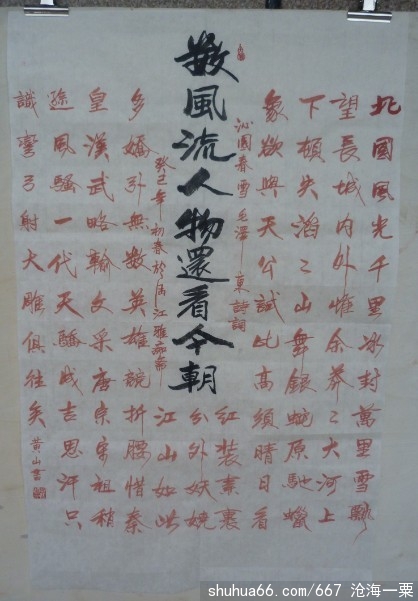 北國風光千里冰封萬里雪飄
望長城内外惟余莽〻大河上
下頓失滔〻山舞銀蛇原馳蠟
象欲與天公試比高須晴日看
紅裝素裹
分外妖嬈
江山如此
多嬌引無數英雄競折腰惜秦
皇漢武略輸文采唐宗宋祖稍
遜風騷一代天驕成吉思汗只
識彎弓射大雕俱往矣
數風流人物還看今朝
沁園春雪毛澤東詩詞
癸巳年初春於江雅
黄山書
shuhua66.com/667 沧海一粟